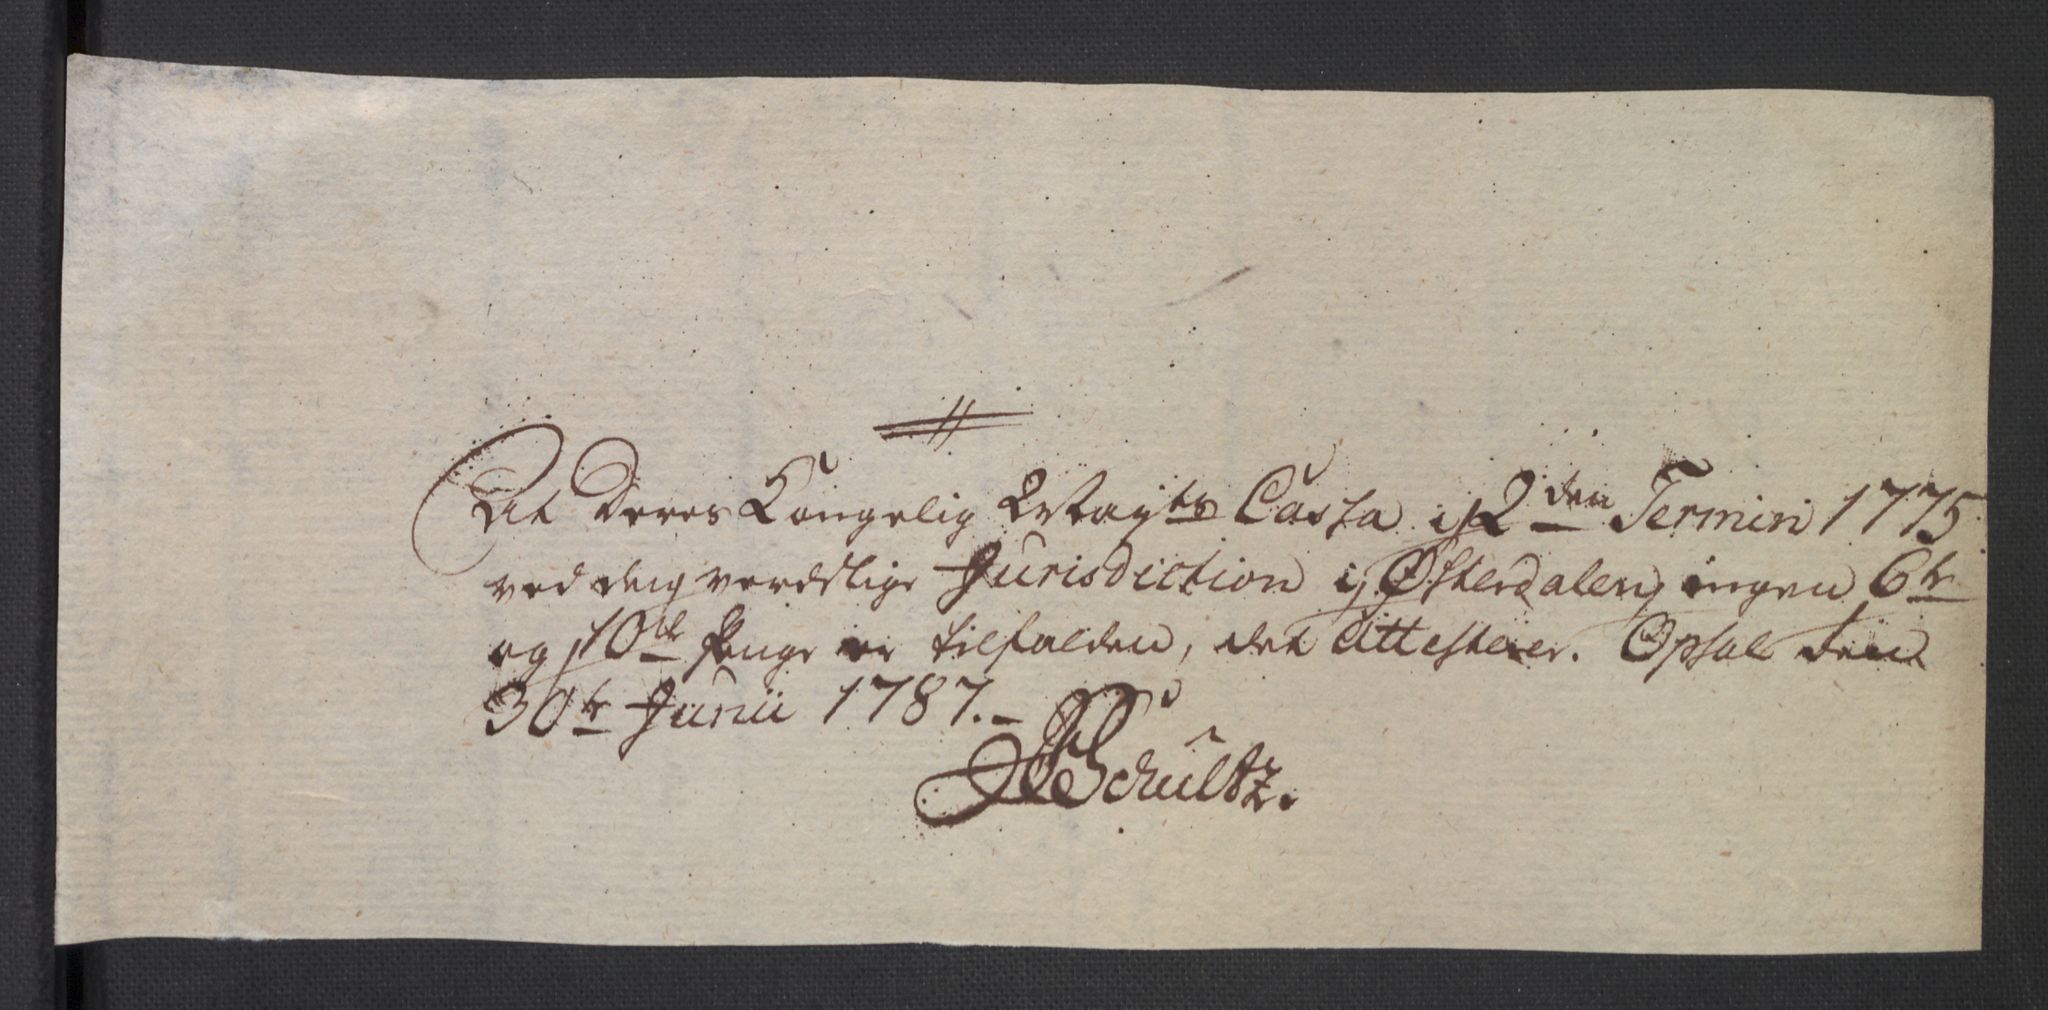 At Deres Kongelig Mayts Cassa i 2den Termin 1775
ved den verdslige Jurisdiction i Østerdalen, ingen 6te
og 10de Penge er tilfalden, det Attesterer. Opsal den
30te Junii 1787.
Schultz.